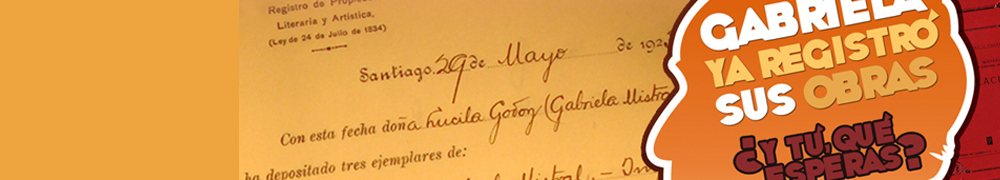 Registro de
Literaria y Artística,
(Ley de 24 de Julio de 1834)
Santiago 29 de Mayo de 192
Con esta fecha doña Lucila Godoy (Gabriela
ha depositado tres ejemplares de:
GABRIELA
YA REGISTRÓ
SUS OBRAS
¿Y TÚ, QUÉ
ESPERAS?